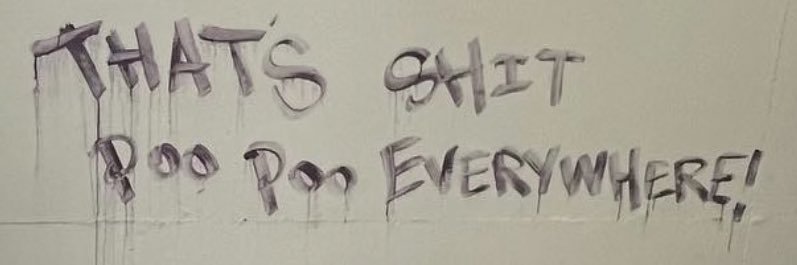 THAT'S SHIT
POO POO EVERYWHERE!